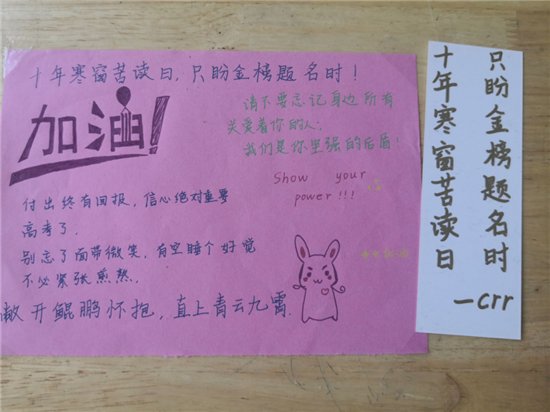 十年寒窗苦读日,只盼金榜题名时!
加油!
请不要忘记身边所有
关爱着你的人:
我们是你坚强的后盾!
Show your
power!!!
付出终有回报,信心绝对重要
高考了.
别忘了面带微笑,有空睡个好觉
不必紧张煎熬,
敞开鲲鹏怀抱,直上青云九霄
只盼金榜题名时
十年寒窗苦读日
一crr